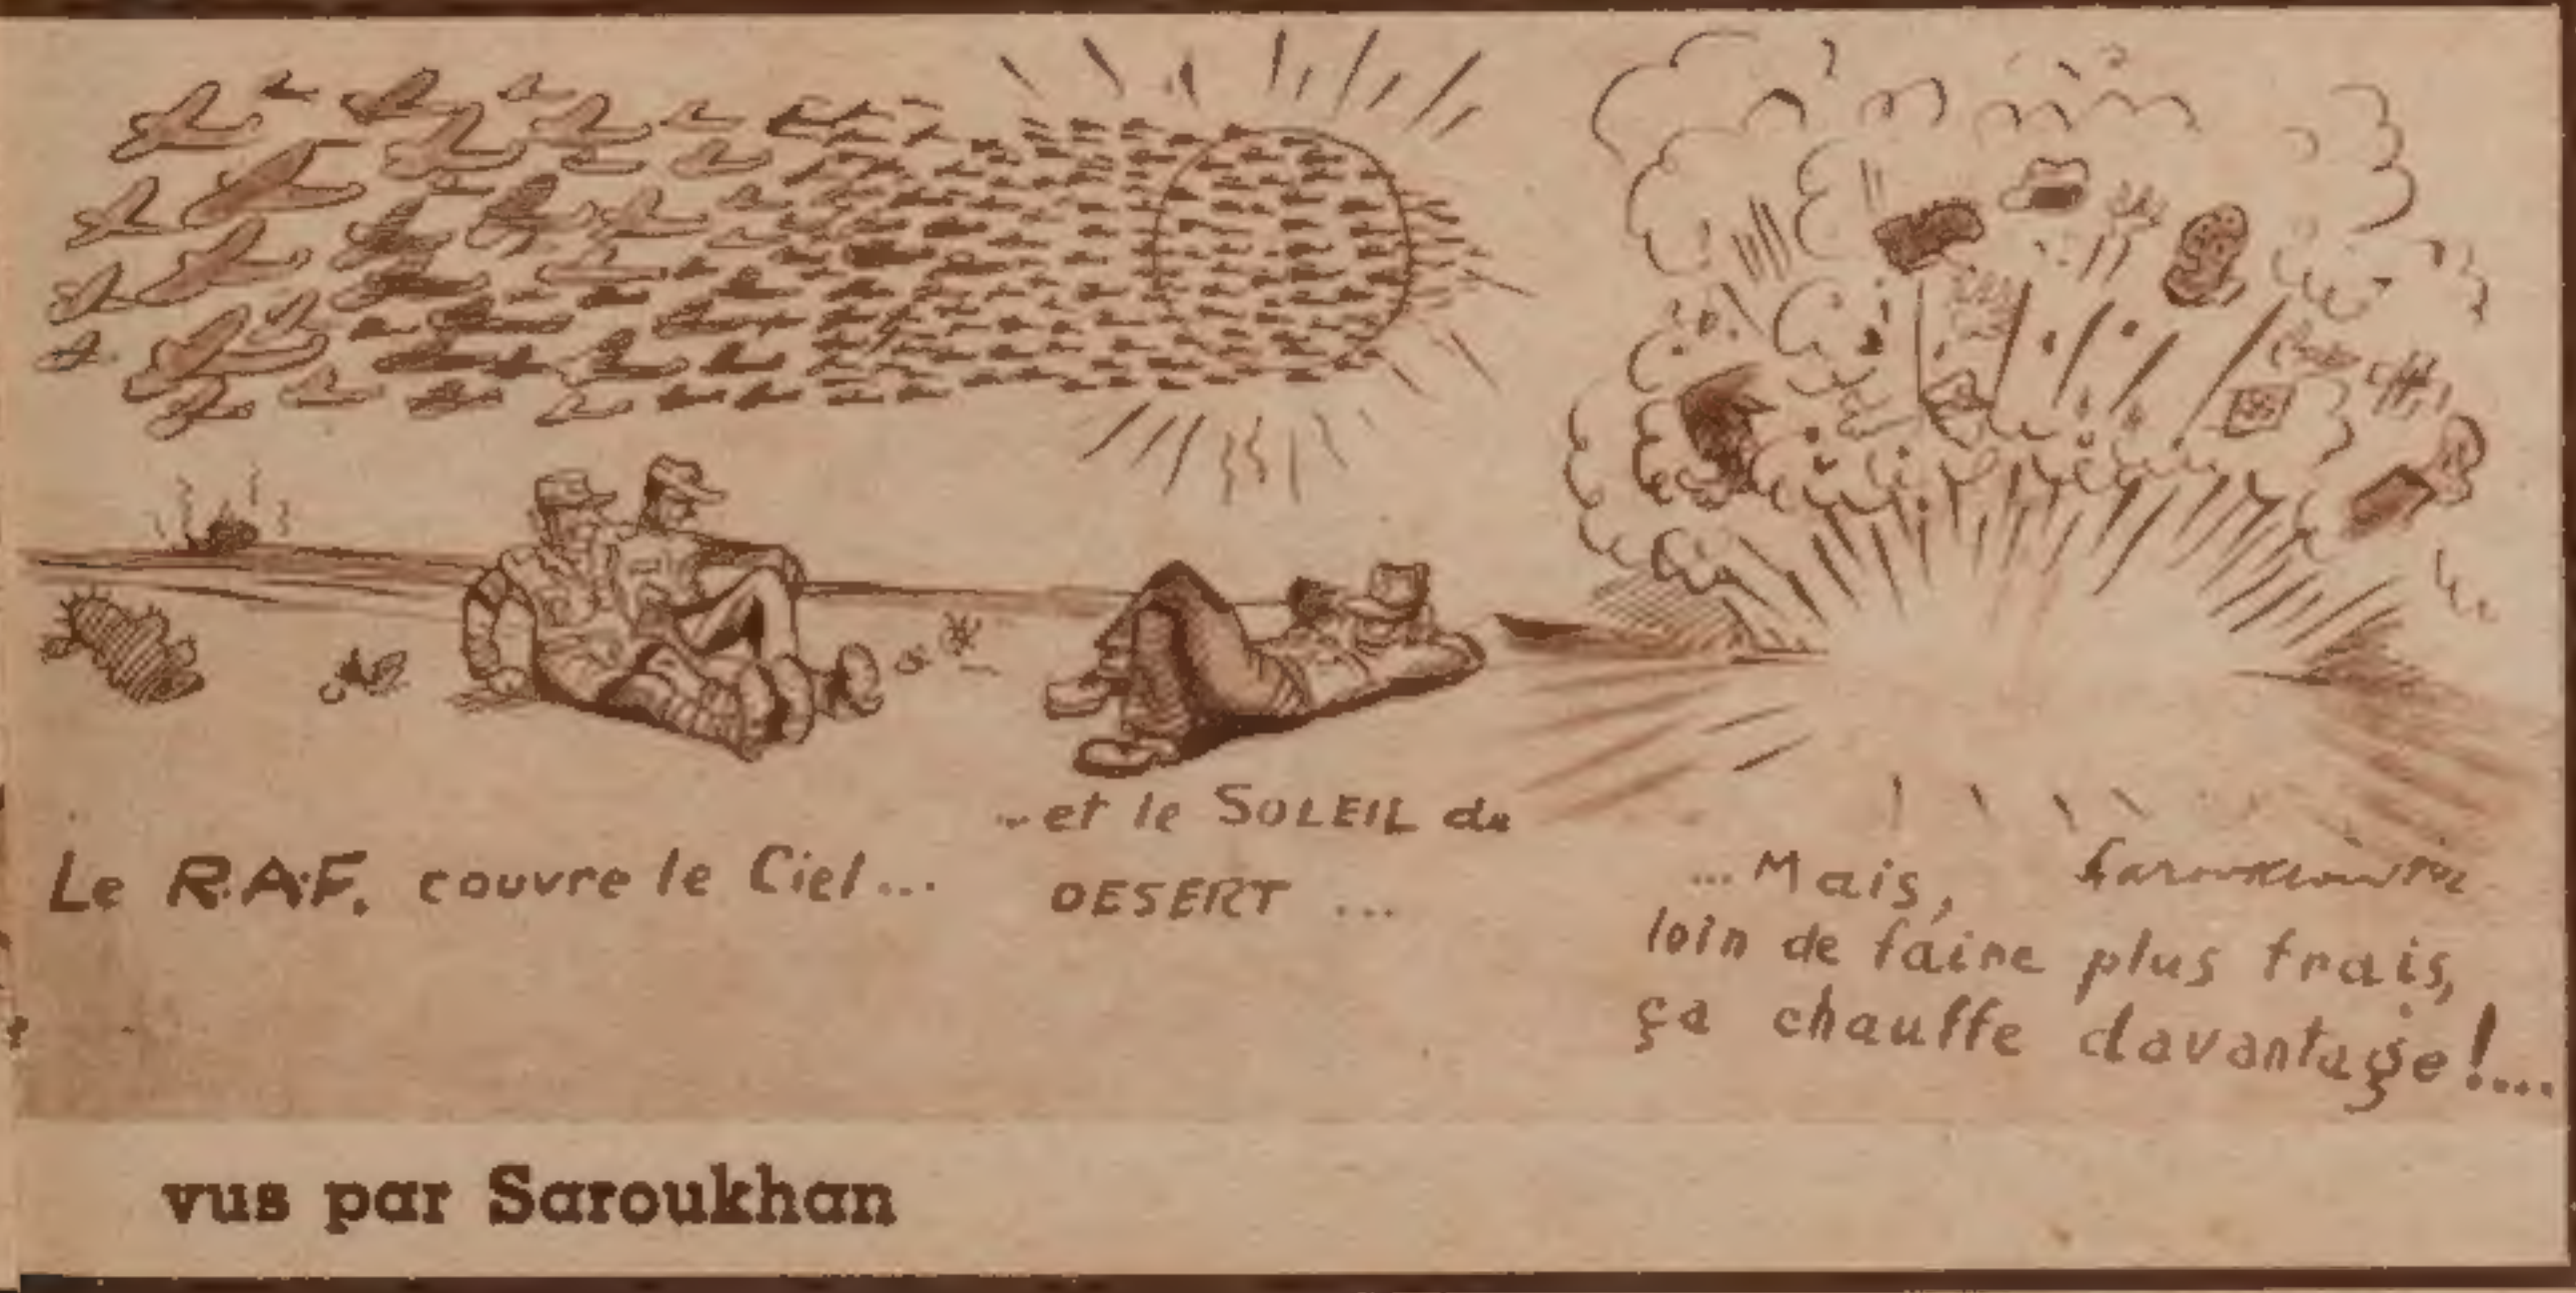 Le R.A.F. couvre le Ciel...
...et le SOLEIL du
DESERT ...
...Mais,
loin de faire plus frais,
ça chauffe davantage!....
vus par Saroukhan